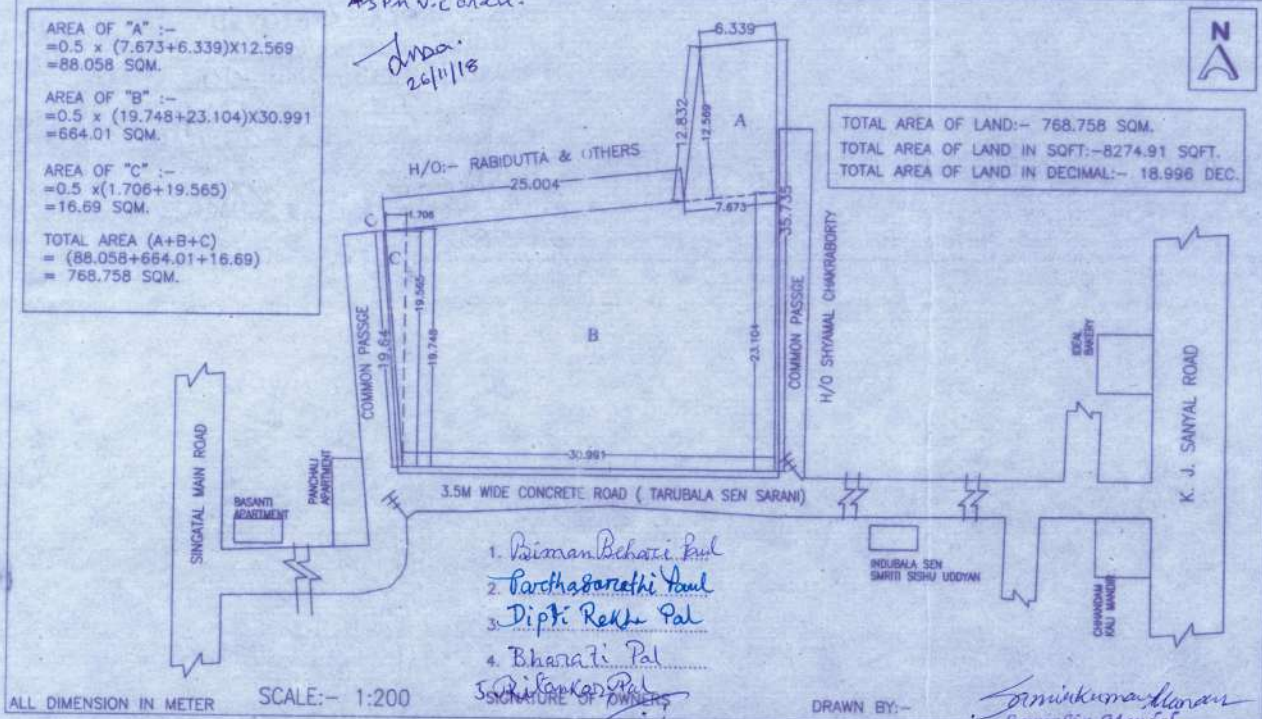 AREA OF "A" :-
=0.5 x (7.673+6.339)X12.569
=88.058 SQM.
AREA OF "B" :-
=0.5 x (19.748+23.104)X30.991
=664.01 SQM.
AREA OF "C" :-
=0.5 x(1.706+19.565)
=16.69 SQM.
TOTAL AREA (A+B+C)
= (88.058+664.01+16.69)
= 768.758 SQM.
26/11/18
N
TOTAL AREA OF LAND:- 768.758 SQM.
TOTAL AREA OF LAND IN SQFT:-8274.91 SQFT.
TOTAL AREA OF LAND IN DECIMAL:- 18.996 DEC.
6.339
12.832
12.569
A
H/O:- RABIDUTTA & OTHERS
25.004
7.673
35.735
C
1.706
C
19.565
19.64
19.748
B
23.104
30.991
COMMON PASSGE
COMMON PASSGE
H/O SHYAMAL CHAKRABORTY
IDEAL
BAKERY
K. J. SANYAL ROAD
SINGATAL MAIN ROAD
BASANTI
APARTMENT
PANCHALI
APARTMENT
3.5M WIDE CONCRETE ROAD ( TARUBALA SEN SARANI)
INDUBALA SEN
SMRITI SISHU UDDYAN
CHHANDAM
KALI MANDIR
1. Biman Behari Paul
2. Parthasarathi Paul
3. Dipti Rekha Pal
4. Bharati Pal
5. Ritankar Pal
SIGNATURE OF OWNERS
ALL DIMENSION IN METER
SCALE:- 1:200
DRAWN BY:-